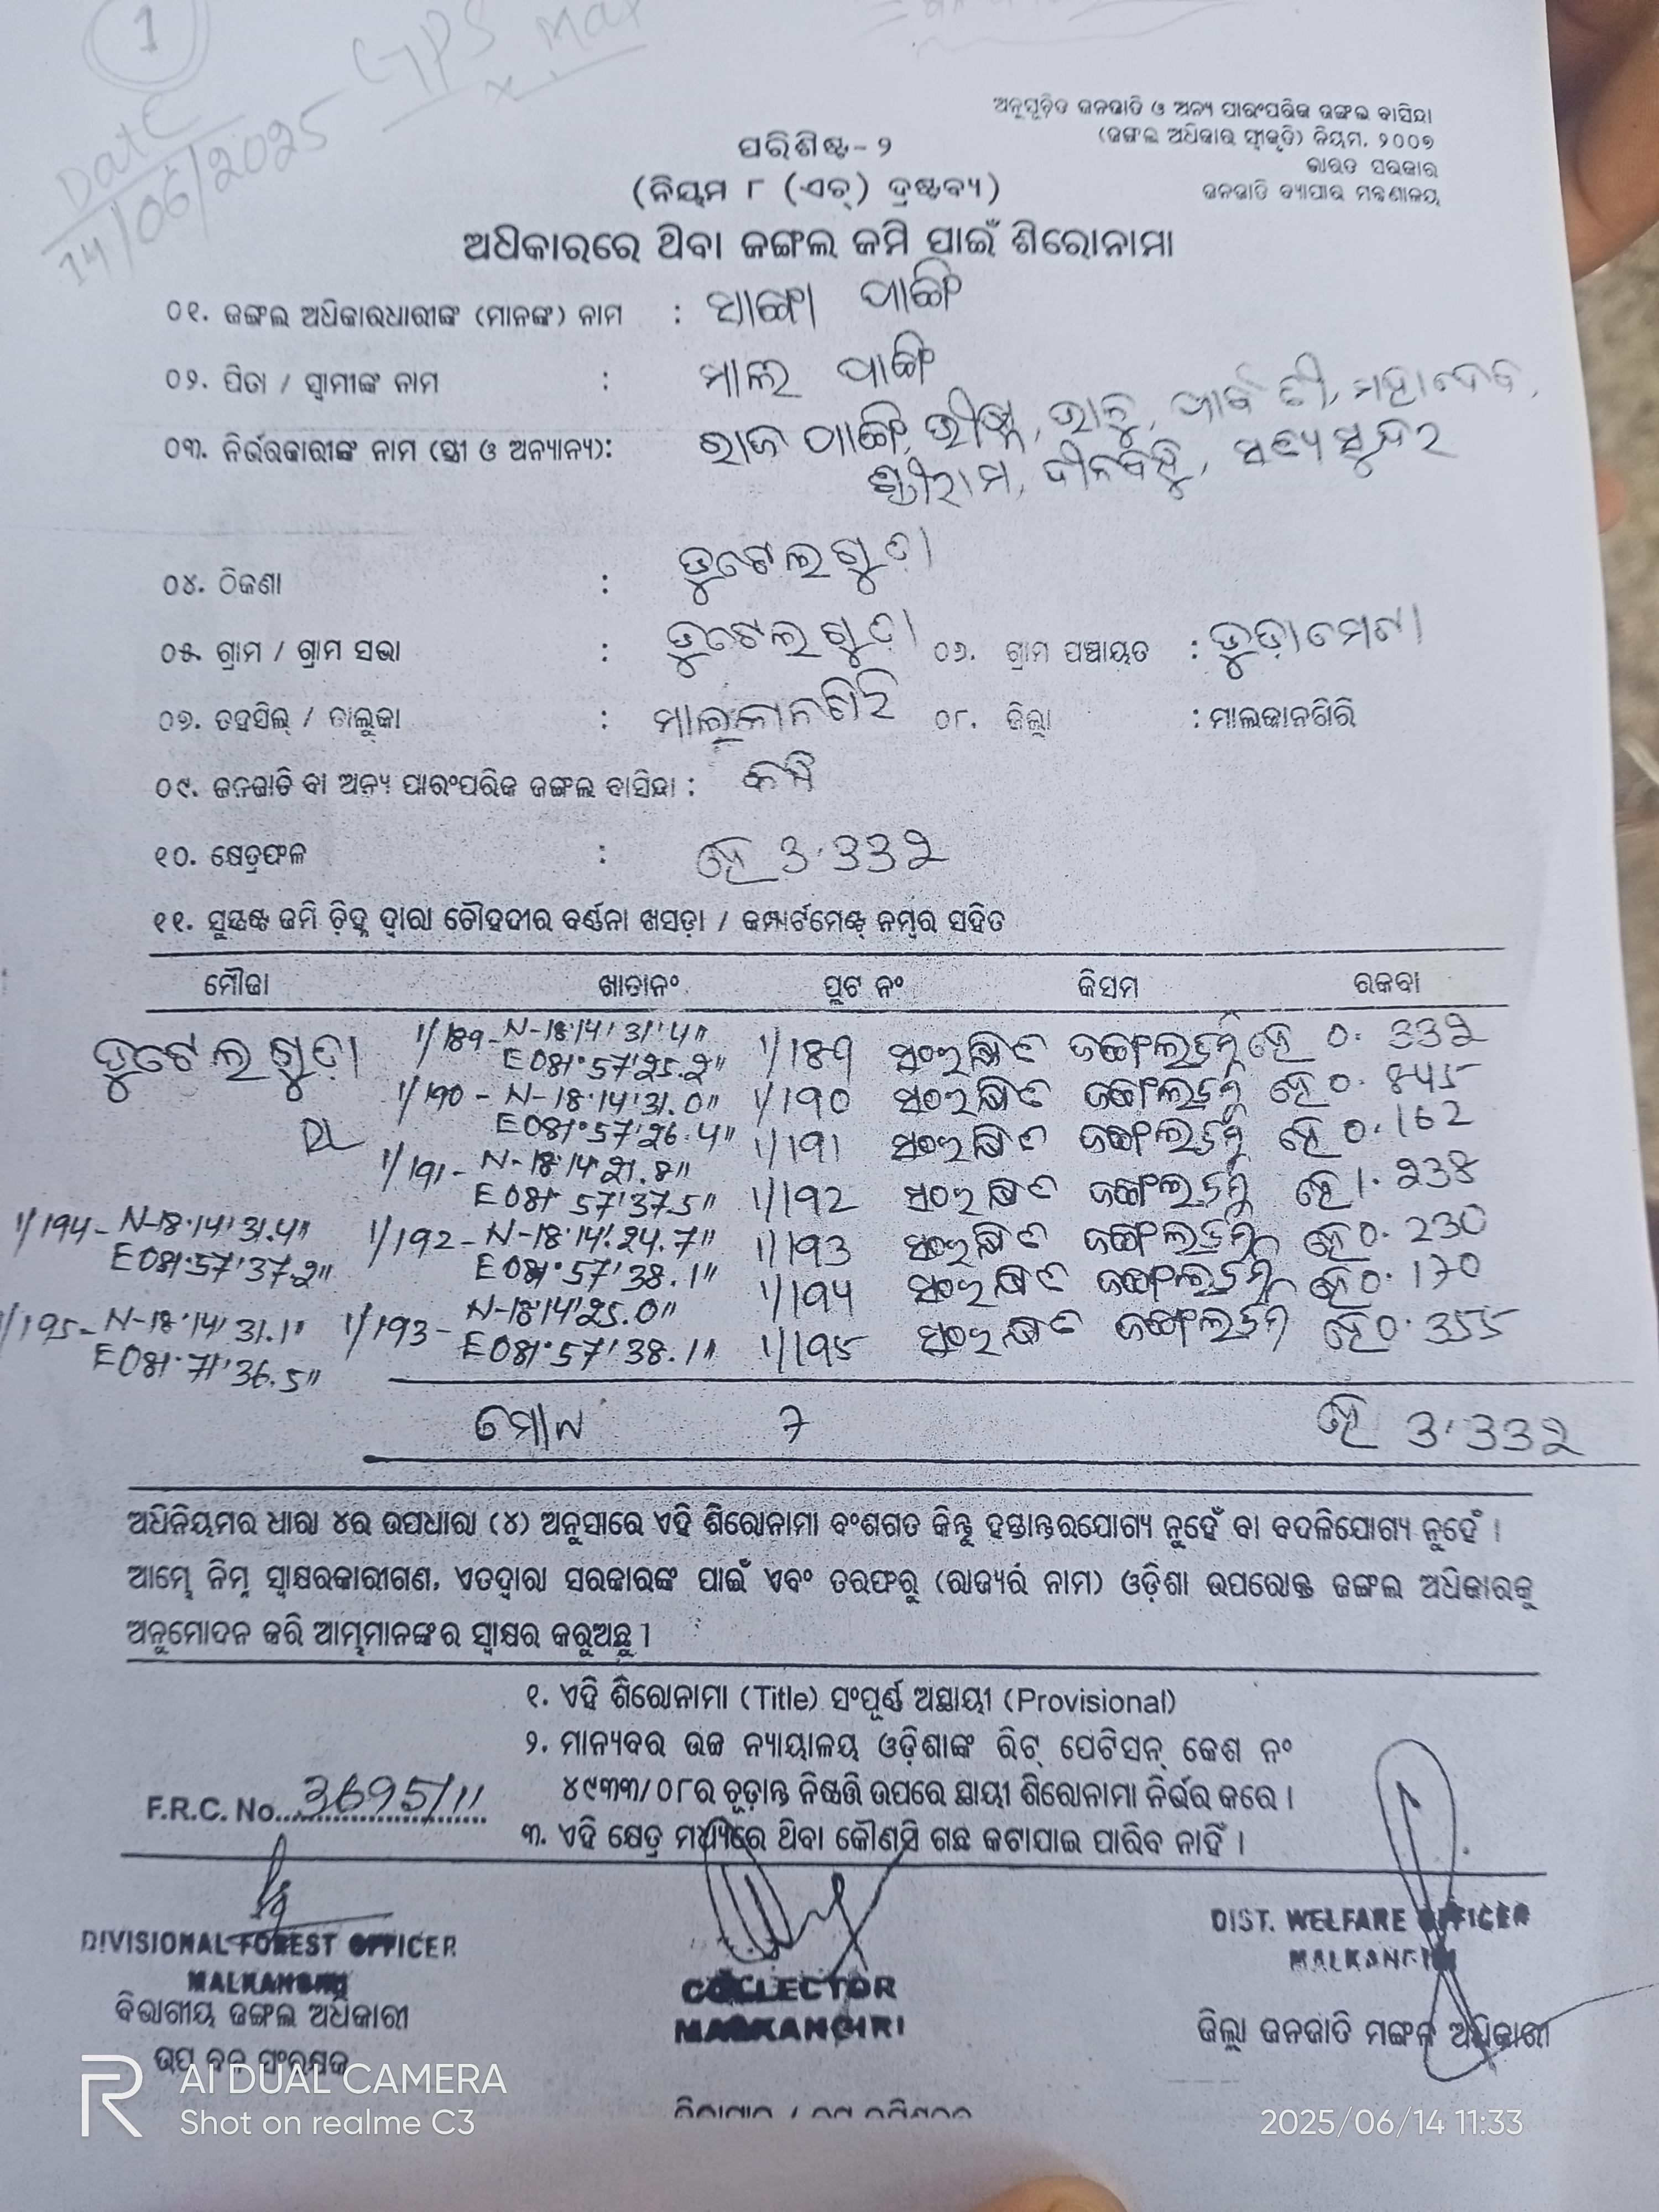 1
GPS Map
Date
14/06/2025
ଅନୁସୂଚିତ ଜନଜାତି ଓ ଅନ୍ୟ ପାରଂପରିକ ଜଙ୍ଗଲ ବାସିନ୍ଦା
(ଜଙ୍ଗଲ ଅଧିକାର ସ୍ୱୀକୃତି) ନିୟମ, ୨୦୦୭
ଭାରତ ସରକାର
ଜନଜାତି ବ୍ୟାପାର ମନ୍ତ୍ରଣାଳୟ
ପରିଶିଷ୍ଟ-୨
(ନିୟମ ୮ (ଏଚ୍) ଦ୍ରଷ୍ଟବ୍ୟ)
ଅଧିକାରରେ ଥିବା ଜଙ୍ଗଲ ଜମି ପାଇଁ ଶିରୋନାମା
୦୧. ଜଙ୍ଗଲ ଅଧିକାରଧାରୀଙ୍କ (ମାନଙ୍କ) ନାମ :
୦୨. ପିତା / ସ୍ୱାମୀଙ୍କ ନାମ : ମାଲ ପାଙ୍ଗି
୦୩. ନିର୍ଭରକାରୀଙ୍କ ନାମ (ସ୍ତ୍ରୀ ଓ ଅନ୍ୟାନ୍ୟ): ରାଜ ପାଙ୍ଗି, ମହାଦେବ,
ଶ୍ରୀରାମ, ଦୀନବନ୍ଧୁ, ସତ୍ୟସୁନ୍ଦର
୦୪. ଠିକଣା : ତୁଟେଲଗୁଡ଼ା
୦୫. ଗ୍ରାମ / ଗ୍ରାମ ସଭା : ତୁଟେଲଗୁଡ଼ା ୦୬. ଗ୍ରାମ ପଞ୍ଚାୟତ :
୦୭. ତହସିଲ୍ / ତାଲୁକା : ମାଲକାନଗିରି ୦୮. ଜିଲ୍ଲା : ମାଲକାନଗିରି
୦୯. ଜନଜାତି ବା ଅନ୍ୟ ପାରଂପରିକ ଜଙ୍ଗଲ ବାସିନ୍ଦା :
୧୦. କ୍ଷେତ୍ରଫଳ : ହେ 3.332
୧୧. ସୁସ୍ପଷ୍ଟ ଜମି ଚିହ୍ନ ଦ୍ୱାରା ଚୌହଦୀର ବର୍ଣ୍ଣନା ଖସଡ଼ା / କମ୍ପାର୍ଟମେଣ୍ଟ ନମ୍ବର ସହିତ
ମୌଜା ଖାତାନଂ ପ୍ଲଟ ନଂ କିସମ ରକବା
ତୁଟେଲଗୁଡ଼ା 1/189-N-18°14'31'4" 1/189 ଜଙ୍ଗଲ ହେ 0.332
E081°57'25.2"
1/190-N-18°14'31.0" 1/190 ଜଙ୍ଗଲ ହେ 0.845
E081°57'26.4"
1/191-N-18°14'21.8" 1/191 ଜଙ୍ଗଲ ହେ 0.162
E081°57'37.5" 1/192 ଜଙ୍ଗଲ ହେ 1.238
1/194-N-18°14'31.4" 1/192-N-18°14'.24.7" 1/193 ଜଙ୍ଗଲ ହେ 0.230
E081°57'37.2" E081°57'38.1" 1/194 ଜଙ୍ଗଲ ହେ 0.170
1/195-N-18°14'31.1" 1/193-N-18°14'25.0" 1/195 ଜଙ୍ଗଲ ହେ 0.355
E081°71'36.5" E081°57'38.1"
ମୋଟ 7 ହେ 3.332
ଅଧିନିୟମର ଧାରା ୪ର ଉପଧାରା (୪) ଅନୁସାରେ ଏହି ଶିରୋନାମା ବଂଶଗତ କିନ୍ତୁ ହସ୍ତାନ୍ତରଯୋଗ୍ୟ ନୁହେଁ ବା ବଦଳିଯୋଗ୍ୟ ନୁହେଁ ।
ଆମ୍ଭେ ନିମ୍ନ ସ୍ୱାକ୍ଷରକାରୀଗଣ, ଏତଦ୍ଦ୍ୱାରା ସରକାରଙ୍କ ପାଇଁ ଏବଂ ତରଫରୁ (ରାଜ୍ୟର ନାମ) ଓଡ଼ିଶା ଉପରୋକ୍ତ ଜଙ୍ଗଲ ଅଧିକାରକୁ
ଅନୁମୋଦନ କରି ଆମ୍ଭମାନଙ୍କର ସ୍ୱାକ୍ଷର କରୁଅଛୁ ।
୧. ଏହି ଶିରୋନାମା (Title) ସଂପୂର୍ଣ୍ଣ ଅସ୍ଥାୟୀ (Provisional)
୨. ମାନ୍ୟବର ଉଚ୍ଚ ନ୍ୟାୟାଳୟ ଓଡ଼ିଶାଙ୍କ ରିଟ୍ ପେଟିସନ୍ କେଶ ନଂ
୪୯୩୩/୦୮ର ଚୂଡ଼ାନ୍ତ ନିଷ୍ପତ୍ତି ଉପରେ ସ୍ଥାୟୀ ଶିରୋନାମା ନିର୍ଭର କରେ ।
F.R.C. No. 3695/11
୩. ଏହି କ୍ଷେତ୍ର ମଧ୍ୟରେ ଥିବା କୌଣସି ଗଛ କଟାଯାଇ ପାରିବ ନାହିଁ ।
DIVISIONAL FOREST OFFICER
MALKANGIRI
ବିଭାଗୀୟ ଜଙ୍ଗଲ ଅଧିକାରୀ
ଉପ ବନ ସଂରକ୍ଷକ
COLLECTOR
MALKANGIRI
DIST. WELFARE OFFICER
MALKANGIRI
ଜିଲ୍ଲା ଜନଜାତି ମଙ୍ଗଳ ଅଧିକାରୀ
AI DUAL CAMERA
Shot on realme C3
2025/06/14 11:33